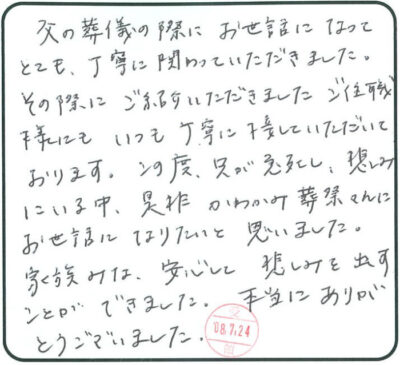 父の葬儀の際に お世話になって
とても、丁寧に関わっていただきました。
その際に ご紹介いただきました ご住職
様にも いつも 丁寧に接していただいて
おります。この度、兄が急死し、悲しみ
にいる中、是非 かわかみ葬祭さんに
お世話に なりたいと 思いました。
家族みな、安心して 悲しみを 出す
ことが できました。本当に ありが
とうございました。
08.7.24